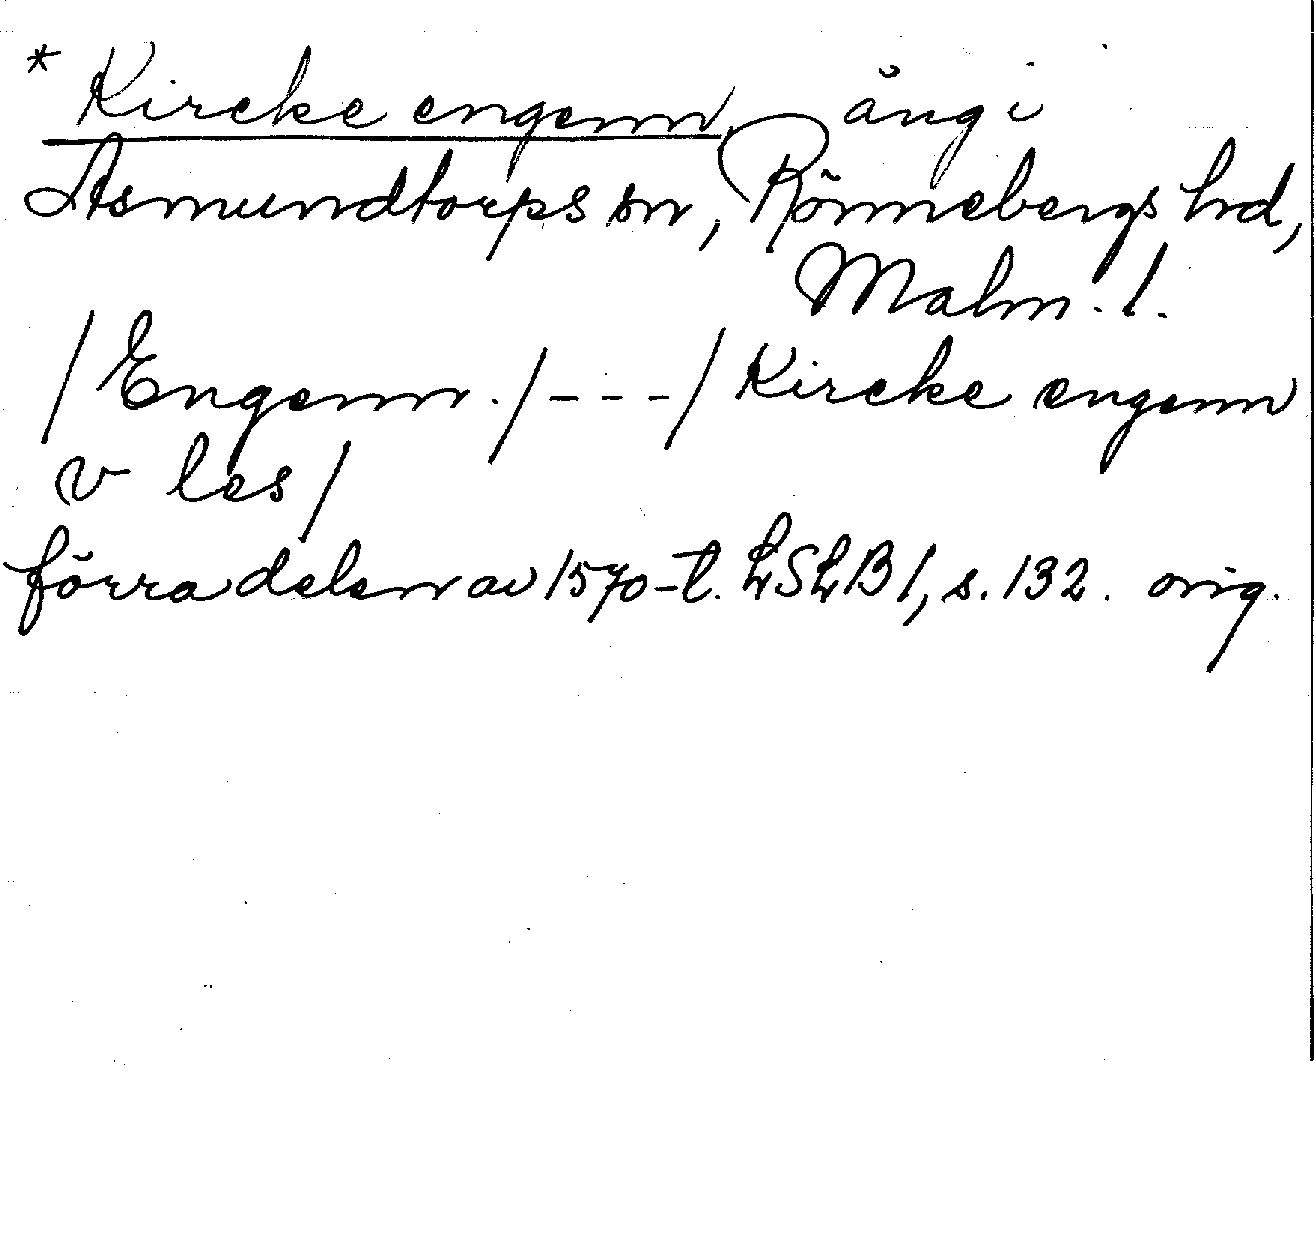 * Kircke engenn, äng i
Asmundtorps sn, Rönnebergs hd,
Malm. l.
/Engenn./---/Kircke engenn
v les/
förra delen av 1570-t. LSLB 1, s. 132. orig.